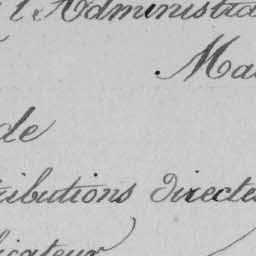 l'Administra
Ma
de
tributions directe
icateur